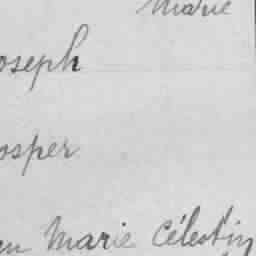 Marie
oseph
osper
en Marie Célestin